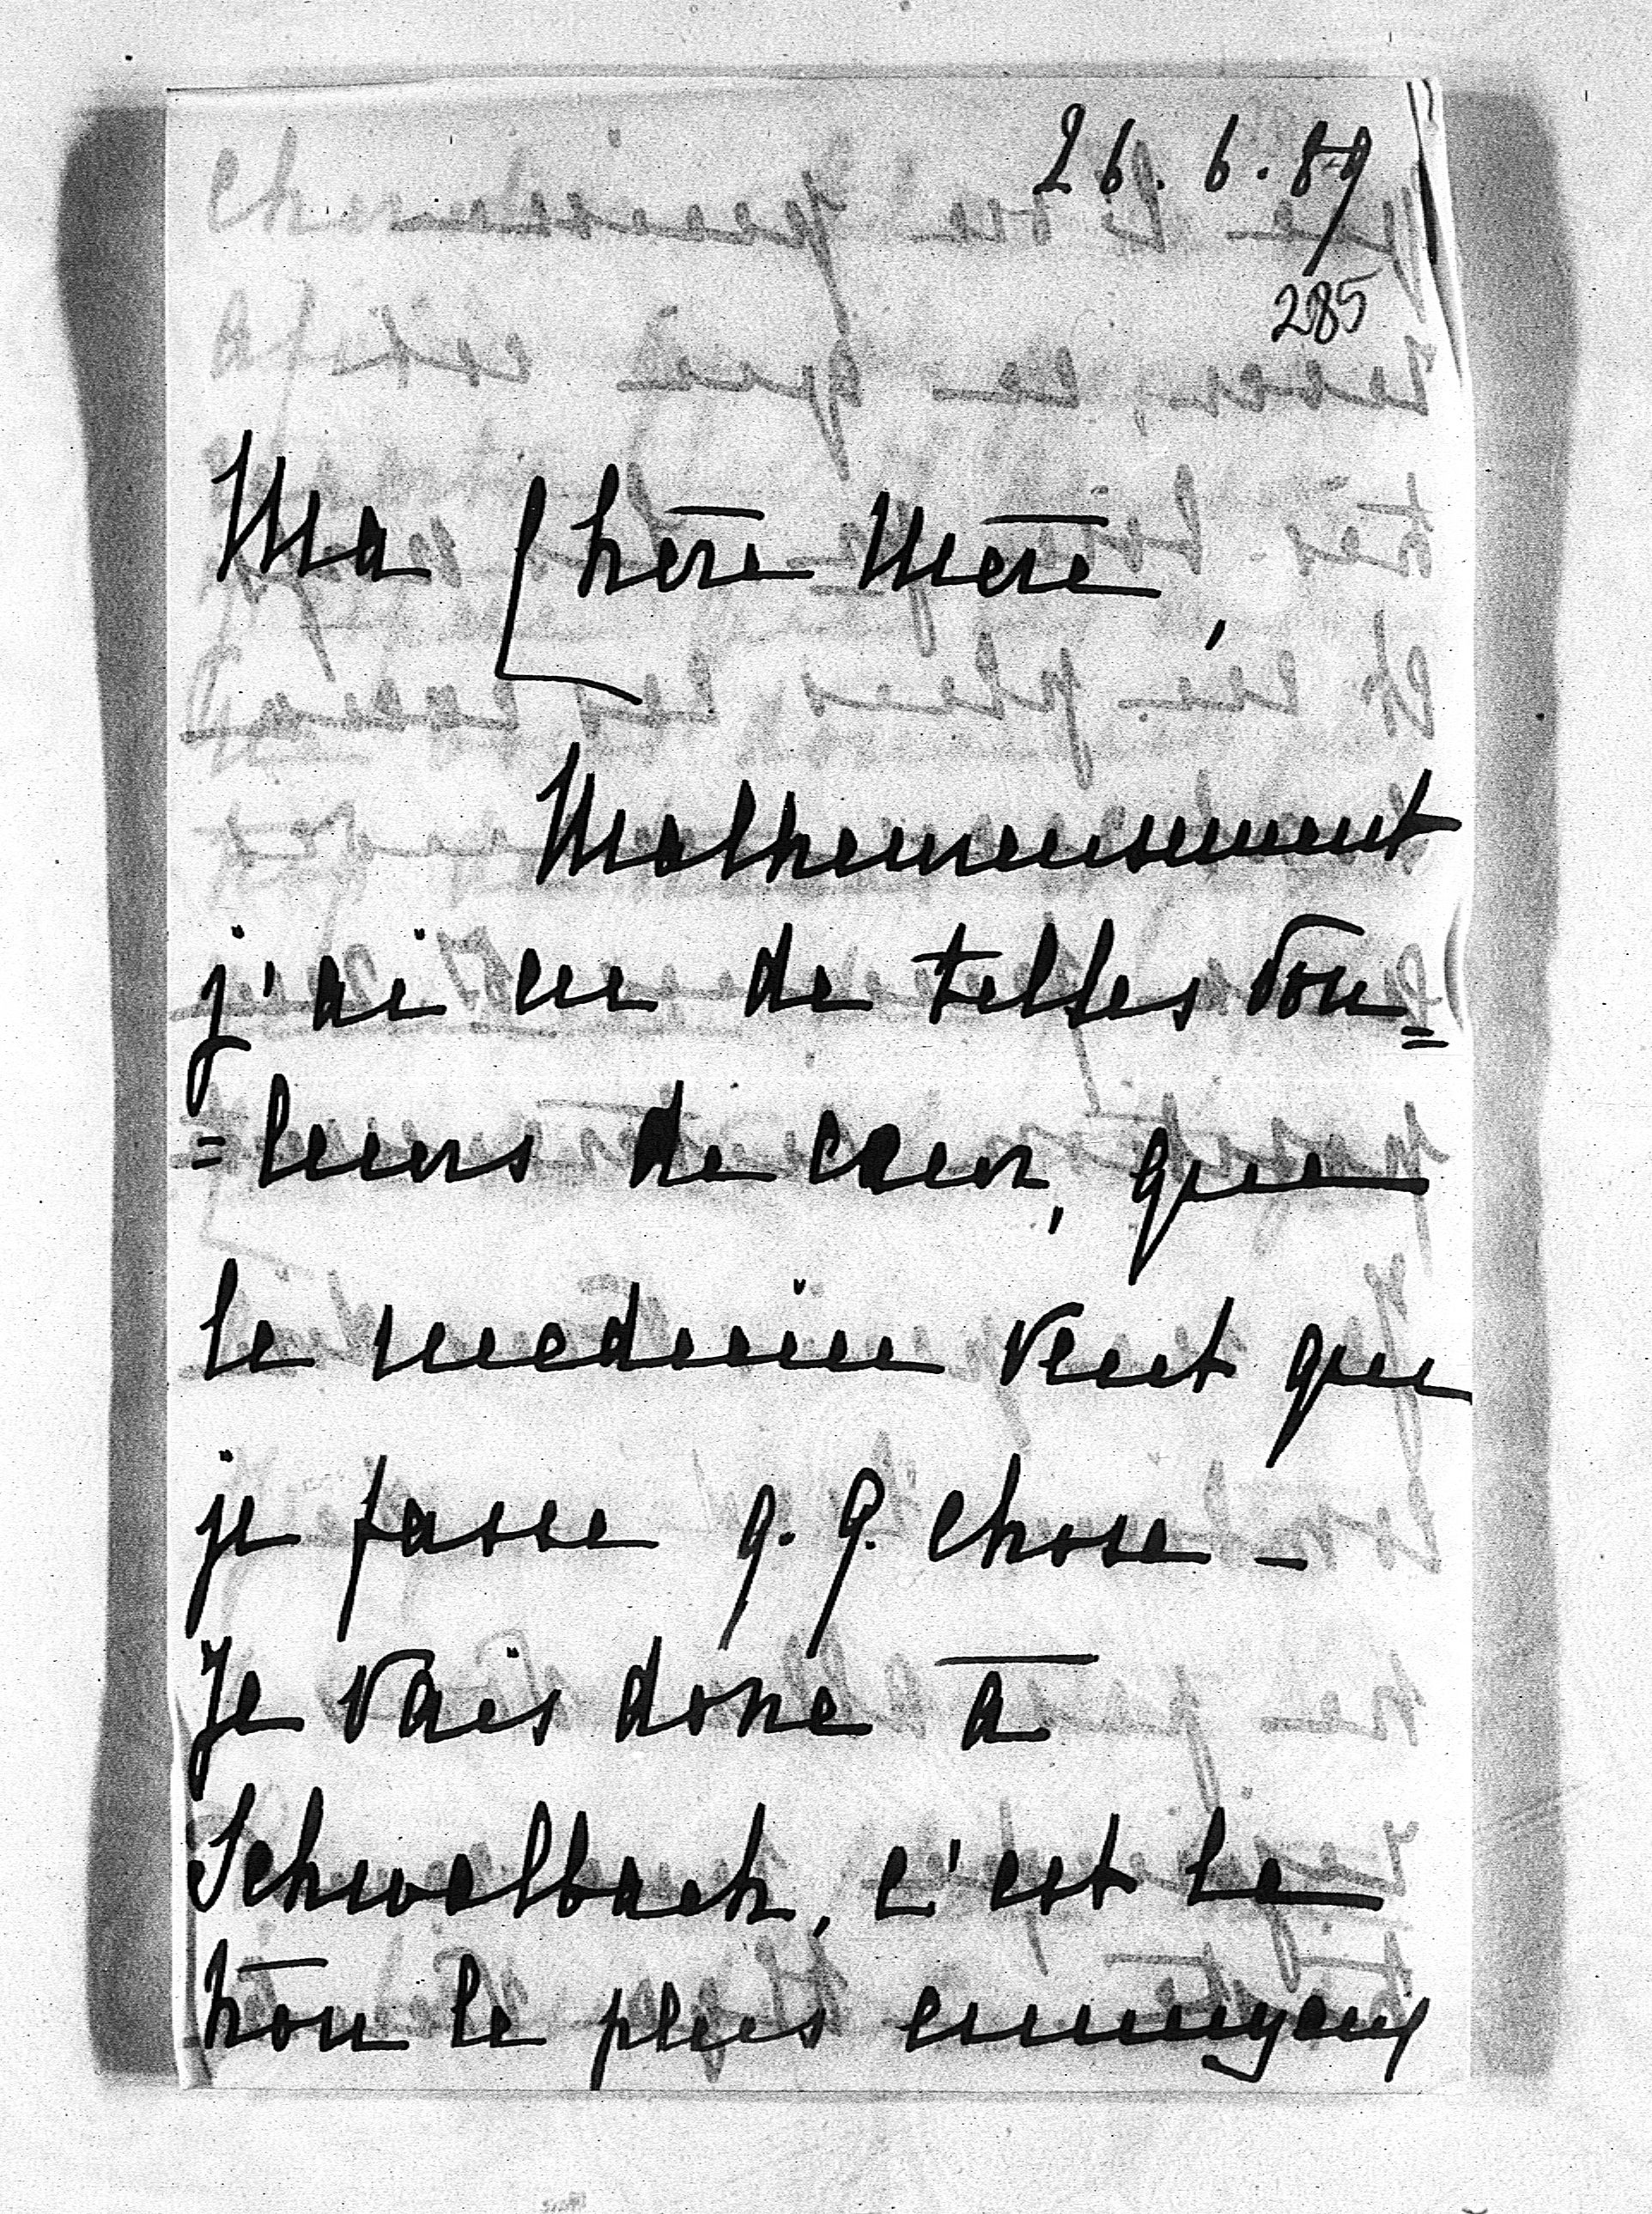 26. 6. 89
285
Ma Chère Mère,
Malheureusement
j'ai eu de telles dou=
=leurs de cœur, que
le medecin veut que
je fasse q. q. chose –
Je vais donc à
Schwalbach, c'est le
trou le plus ennuyeux